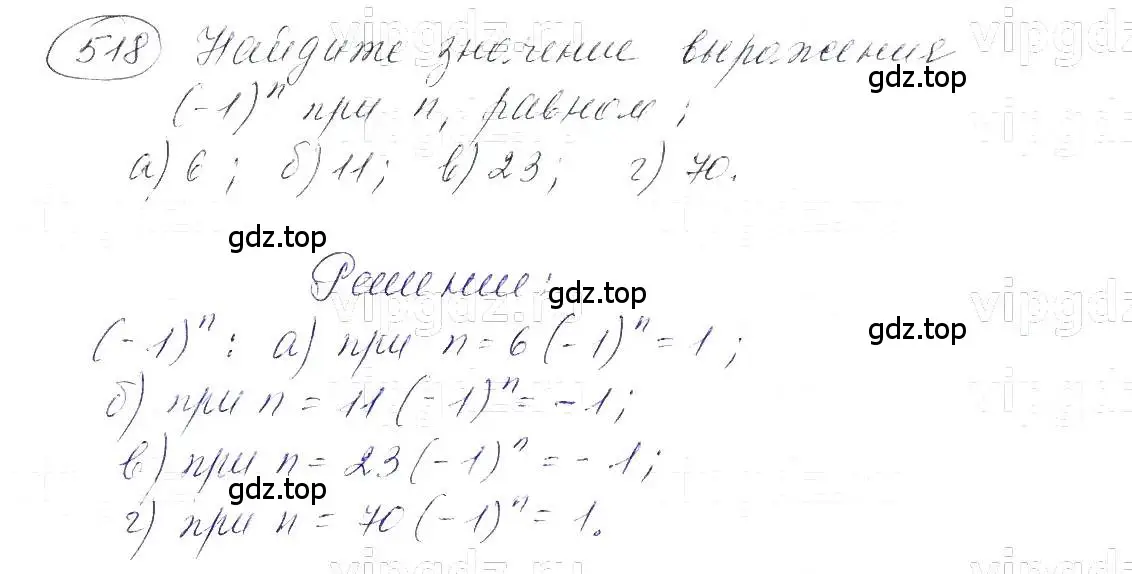 518 Найдите значение выражения
(-1)ⁿ при n, равном;
а) 6; б) 11; в) 23; г) 70.
Решение:
(-1)ⁿ: а) при n = 6 (-1)ⁿ = 1;
б) при n = 11 (-1)ⁿ = -1;
в) при n = 23 (-1)ⁿ = -1;
г) при n = 70 (-1)ⁿ = 1.
gdz.top
gdz.top
gdz.top
gdz.top
gdz.top
vipgdz.ru
vipgdz.ru
vipgdz.ru
vipgdz.ru
vipgdz.ru